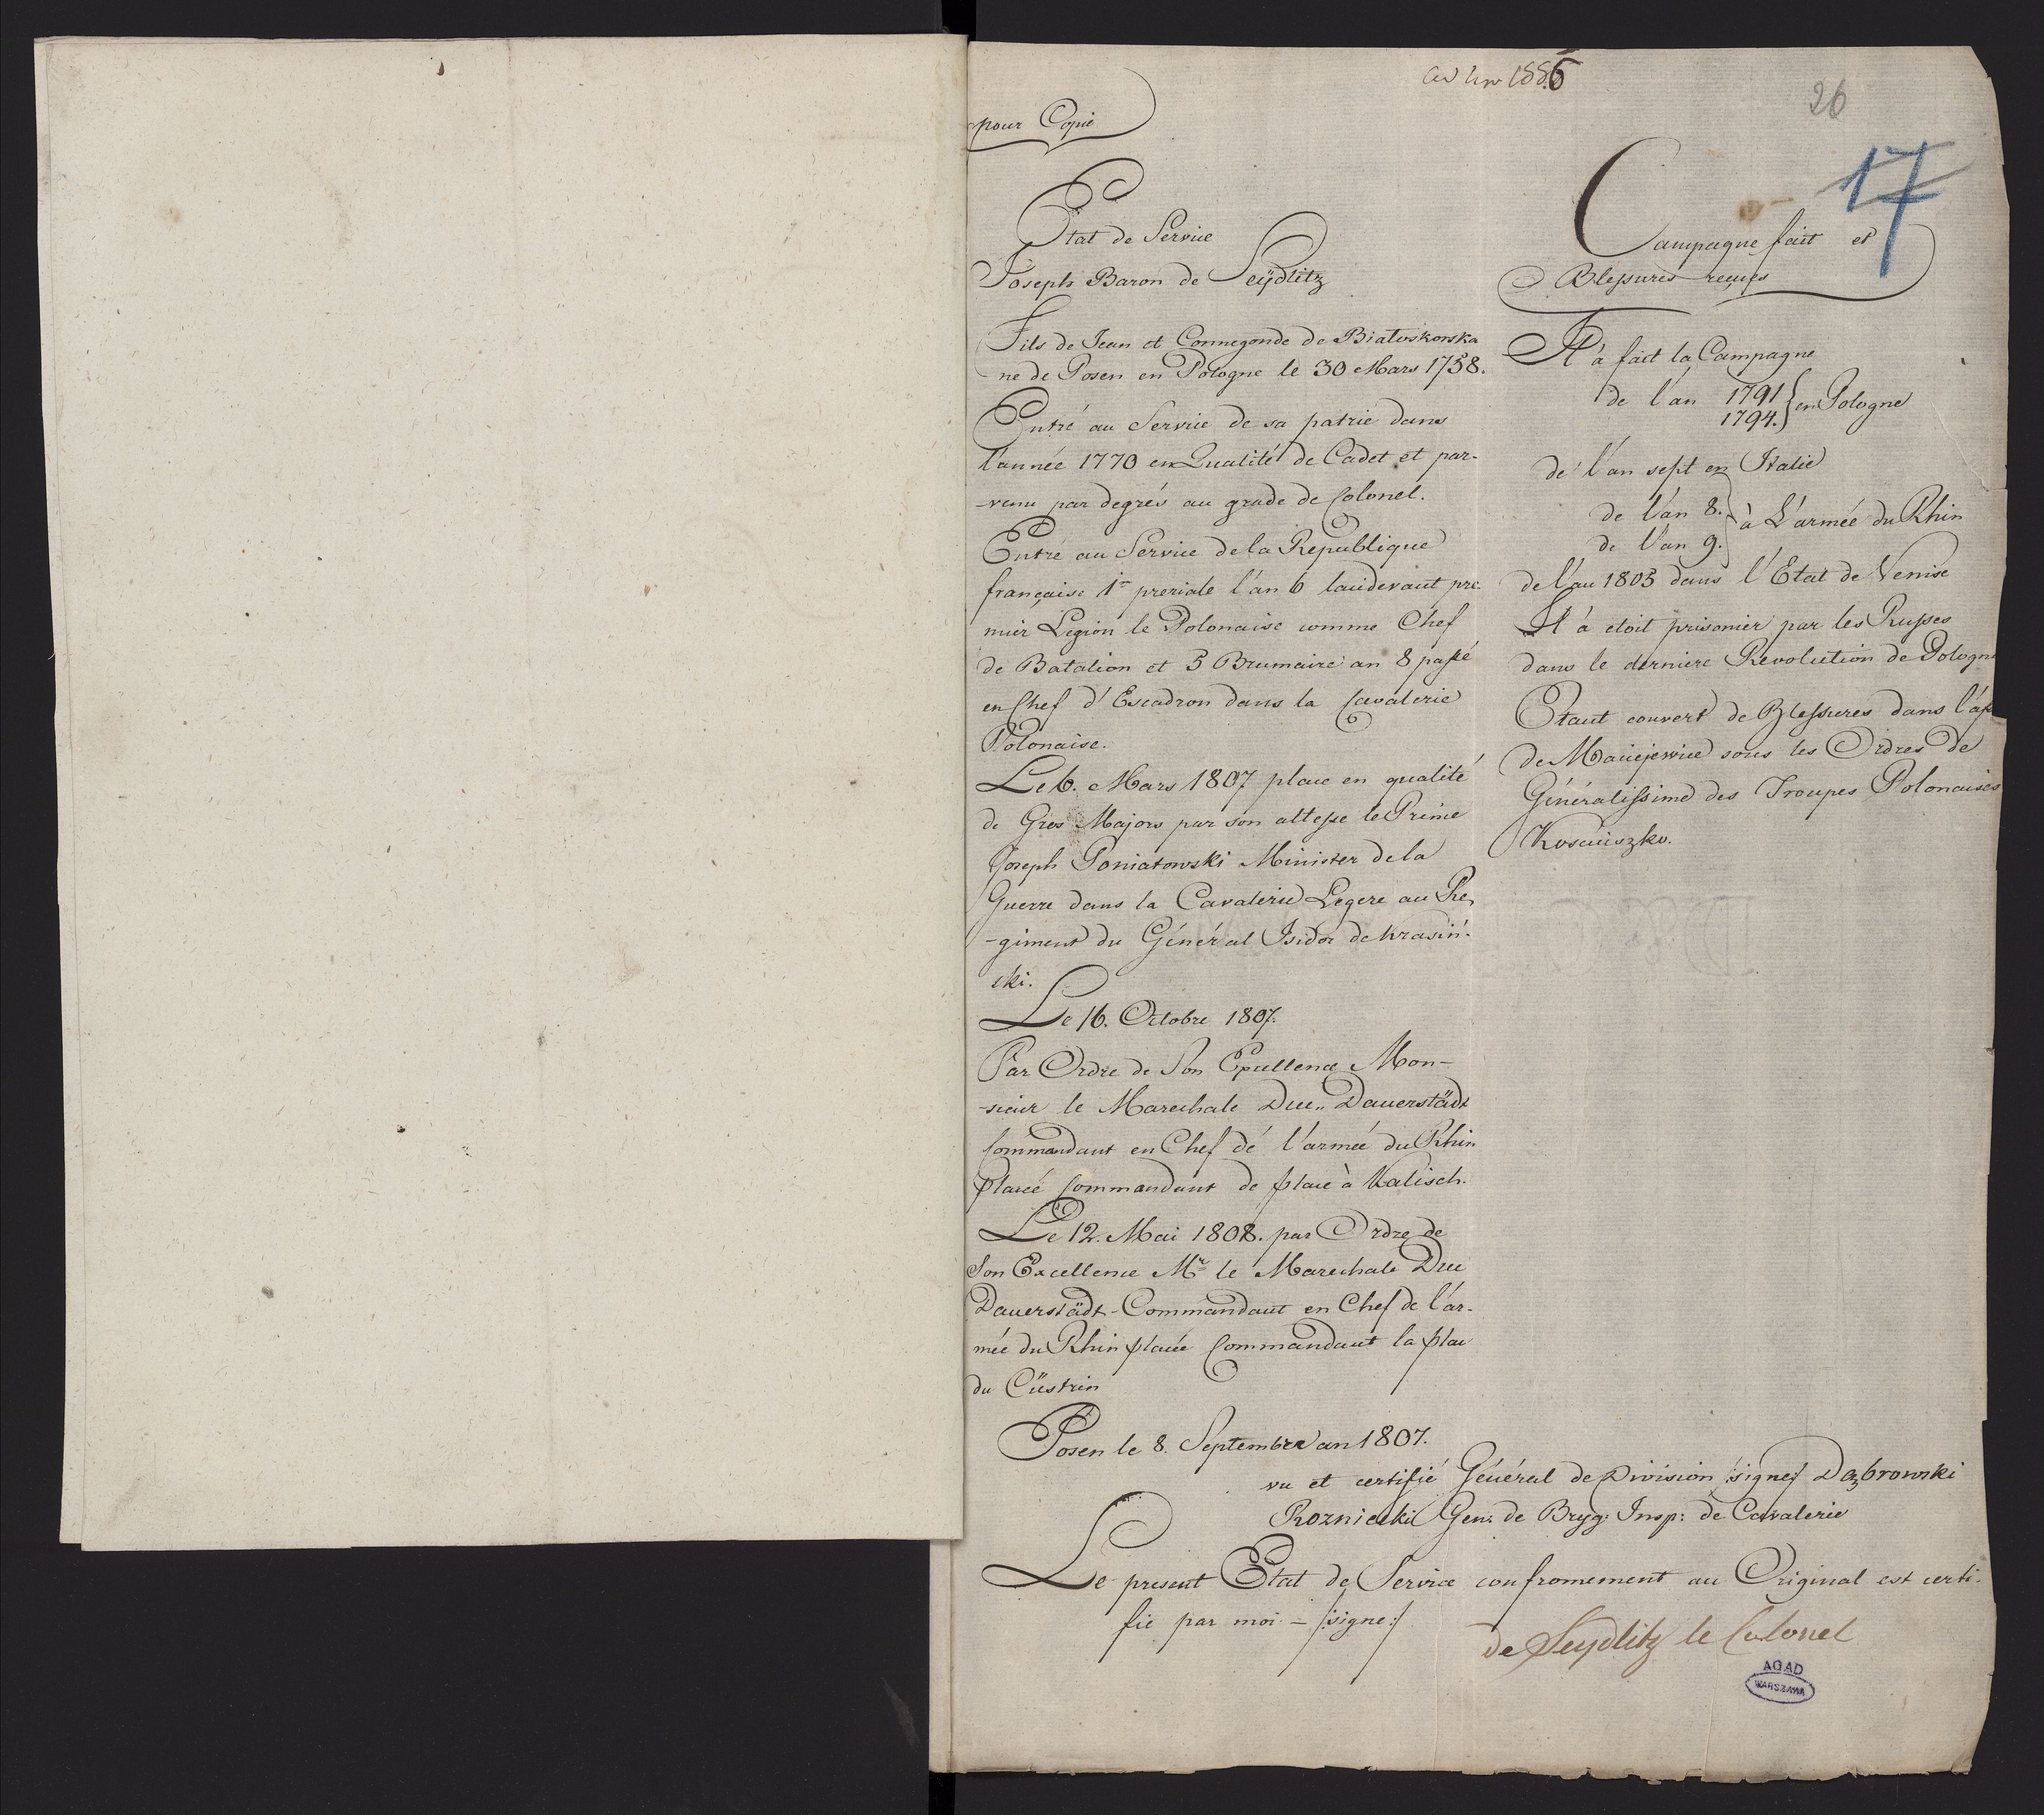 ad Nro 1886
26
17
pour Copie
Etat de Service
Joseph Baron de Seÿdlitz
Fils de Jean et Connegonde de Białoskorska
ne de Posen en Pologne le 30 Mars 1758.
Entré au Service de sa patrie dans
l'année 1770 en Qualité de Cadet et par-
-venu par degrés au grade de Colonel.
Entré au Service de la Republique
française 1r preriale l'an 6 laudevant pre-
mier Legion le Polonaise comme Chef
de Batalion et 3 Brumaire an 8 passé
en Chef d'Escadron dans la Cavalerie
Polonaise.
Le 6. Mars 1807 place en qualité
de Gros Majors par son altesse le Prince
Joseph Poniatowski Minister de la
Guerre dans la Cavalerie Legere au Re,
-giment du Général Isidor de Krasiń-
ski.
Le 16. Octobre 1807.
Par Ordre de Son Excellence Mon-
-sieur le Marechale Duc„ Dauerstädt
Commandant en Chef dé l'armée du Rhin
placé Commandant de place à Kalisch.
Le 12. Mai 1808. par Ordre de
Son Excellence Mr le Marechale Duc
Dauerstädt-Commandant en Chef de l'ar-
mée du Rhin placée Commandant la place
du Cüstrin
Campagne fait et
Blessures reçues
Il à fait la Campagne
de l'an 1791
1794. } en Pologne
de l'an sept en Italie
de l'an 8.
de l'an 9. } à L'armée du Rhin
de l'an 1805 dans l'Etat de Venise
Il à etoit prisonier par les Russes
dans le derniere Revolution de Pologne
Etant couvert de Blessures dans l'af
de Maciejewice sous les Ordres de
Généralissime des Troupes Polonaises
Kosciuszko.
Posen le 8. September an 1807.
vu et certifié Général de Division /signe/ Dąbrowski
Rozniecki Gen: de Bryg: Insp: de Cavalerie
Le present Etat de Service confromement au Original est certi-
fie par moi - /:signe:/
de Seydlitz le Colonel
AGAD
WARSZAWA